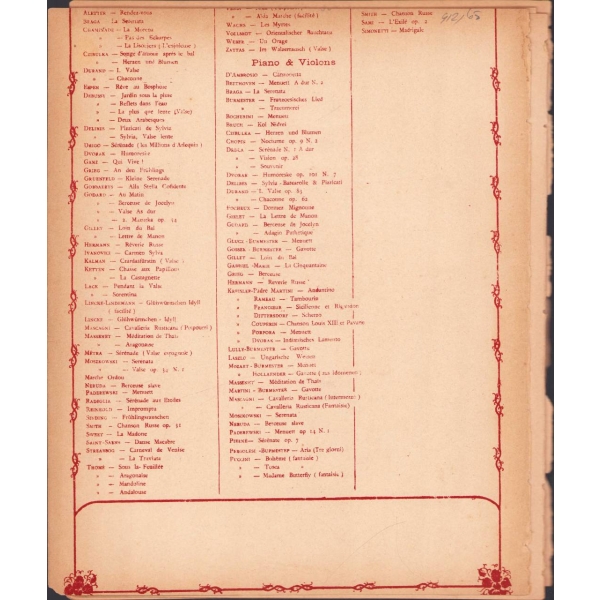 ALETTER — Rendez-vous
BRAGA — La Serenata
CHAMINADE — La Morena
» — Pas des Echarpes
» — La Lisonjera (L'enjôleuse)
CZIBULKA — Songe d'amour après le bal
» — Herzen und Blumen
DURAND — I. Valse
» — Chaconne
ESPEN — Rêve au Bosphore
DEBUSSY — Jardin sous la pluie
» — Reflets dans l'eau
» — La plus que lente (Valse)
» — Deux Arabesques
DELIBES — Pizzicati de Sylvia
» — Sylvia, Valse lente
DRIGO — Sérénade (les Millions d'Arlequin)
DVORAK — Humoreske
GANZ — Qui Vive!
GRIEG — An den Frühlings
GRUENFELD — Kleine Serenade
GODDAERTS — Alla Stella Cofidente
GODARD — Au Matin
» — Berceuse de Jocelyn
» — Valse As dur
» — 2. Mazurka op. 54
GILLET — Loin du Bal
» — Lettre de Manon
HERMANN — Rêverie Russe
IVANOVICI — Carmen Sylva
KALMAN — Czardasfürstin (Valse)
KETTEN — Chasse aux Papillons
» — La Castagnette
LACK — Pendant la Valse
» — Sorentina
LINCKE-LINDEMANN — Glühwürmchen Idyll
(facilité)
LINCKE — Glühwürmchen - Idyll
MASCAGNI — Cavalleria Rusticana (Potpourri)
MASSENET — Méditation de Thaïs
» — Aragonaise
MÉTRA — Sérénade (Valse espagnole)
MOSZKOWSKI — Serenata
» — Valse op. 34 N. 1
Marche Ordou
NERUDA — Berceuse slave
PADEREWSKI — Menuett
RADEGLIA — Sérénade aux Etoiles
REINHOLD — Impromptu
SINDING — Frühlingsrauschen
SMITH — Chanson Russe op. 31
SWEET — La Madone
SAINT-SAENS — Danse Macabre
STREABBOG — Carnaval de Venise
» — La Traviata
THOMÉ — Sous la Feuillée
» — Aragonaise
» — Mandoline
» — Andalouse
» — Aïda Marche (facilité)
WACHS — Les Myrtes
VOLLSTEDT — Orientalischer Rundtanz
WEBER — Un Orage
ZATTAS — Im Walzerrausch (Valse)
Piano & Violons
D'AMBROSIO — Canzonetta
BEETHOVEN — Menuett A dur N. 2
BRAGA — La Serenata
BURMESTER — Franzoesisches Lied
»
BOCHERINI — Menuett
BRUCH — Kol Nidrei
CZIBULKA — Herzen und Blumen
CHOPIN — Nocturne op. 9 N. 2
DRDLA — Serénade N. 1 A dur
» — Vision op. 28
» — Souvenir
DVORAK — Humoreske op. 101 N. 7
DELIBES — Sylvia - Barcarelle & Pizzicati
DURAND — I. Valse op. 83
» — Chaconne op. 62
FISCHEUX — Donnez Mignonne
GILLET — La Lettre de Manon
GODARD — Berceuse de Jocelyn
» — Adagio Pathetique
GLUCK-BURMESTER — Menuett
GOSSEK-BURMESTER — Gavotte
GILLET — Loin du Bal
GABRIEL-MARIE — La Cinquantaine
GRIEG — Berceuse
HERMANN — Reverie Russe
KREISLER-PADRE MARTINI — Andantino
» RAMEAU — Tambourin
» FRANCŒUR — Sicilienne et Rigaudon
» DITTERSDORF — Scherzo
» COUPERIN — Chanson Louis XIII et Pavane
» PORPORA — Menuett
» DVORAK — Indianisches Lamento
LULLY-BURMESTER — Gavotte
LASZLO — Ungarische Weisen
MOZART-BURMESTER — Menuett
» HOLLAENDER — Gavotte
MASSENET — Méditation de Thaïs
MARTINI-BURMESTER — Gavotte
MASCAGNI — Cavalleria Rusticana (Intermezzo)
» — Cavalleria Rusticana (Fantaisie)
MOSZKOWSKI — Serenata
NERUDA — Berceuse slave
PADEREWSKI — Menuett op. 14 N. 1
PIERNÉ — Sérénate op. 7
PERGOLESI-BURMESTER — Aria (Tre giorni)
PUCCINI — Bohème (fantaisie)
» — Tosca »
» — Madame Butterfly (fantaisie)
SMITH — Chanson Russe
SARI — L'Exilé op. 2
SIMONETTI — Madrigale